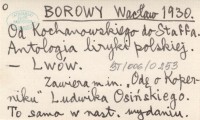 BOROWY Wacław 1930.
Od Kochanowskiego do Staffa.
Antologia liryki polskiej.
— LWÓW. BJ 1006/0 253
Zawiera m.in. „Odę o Koper-
niku" Ludwika Osińskiego.
To samo w nast. wydaniu.